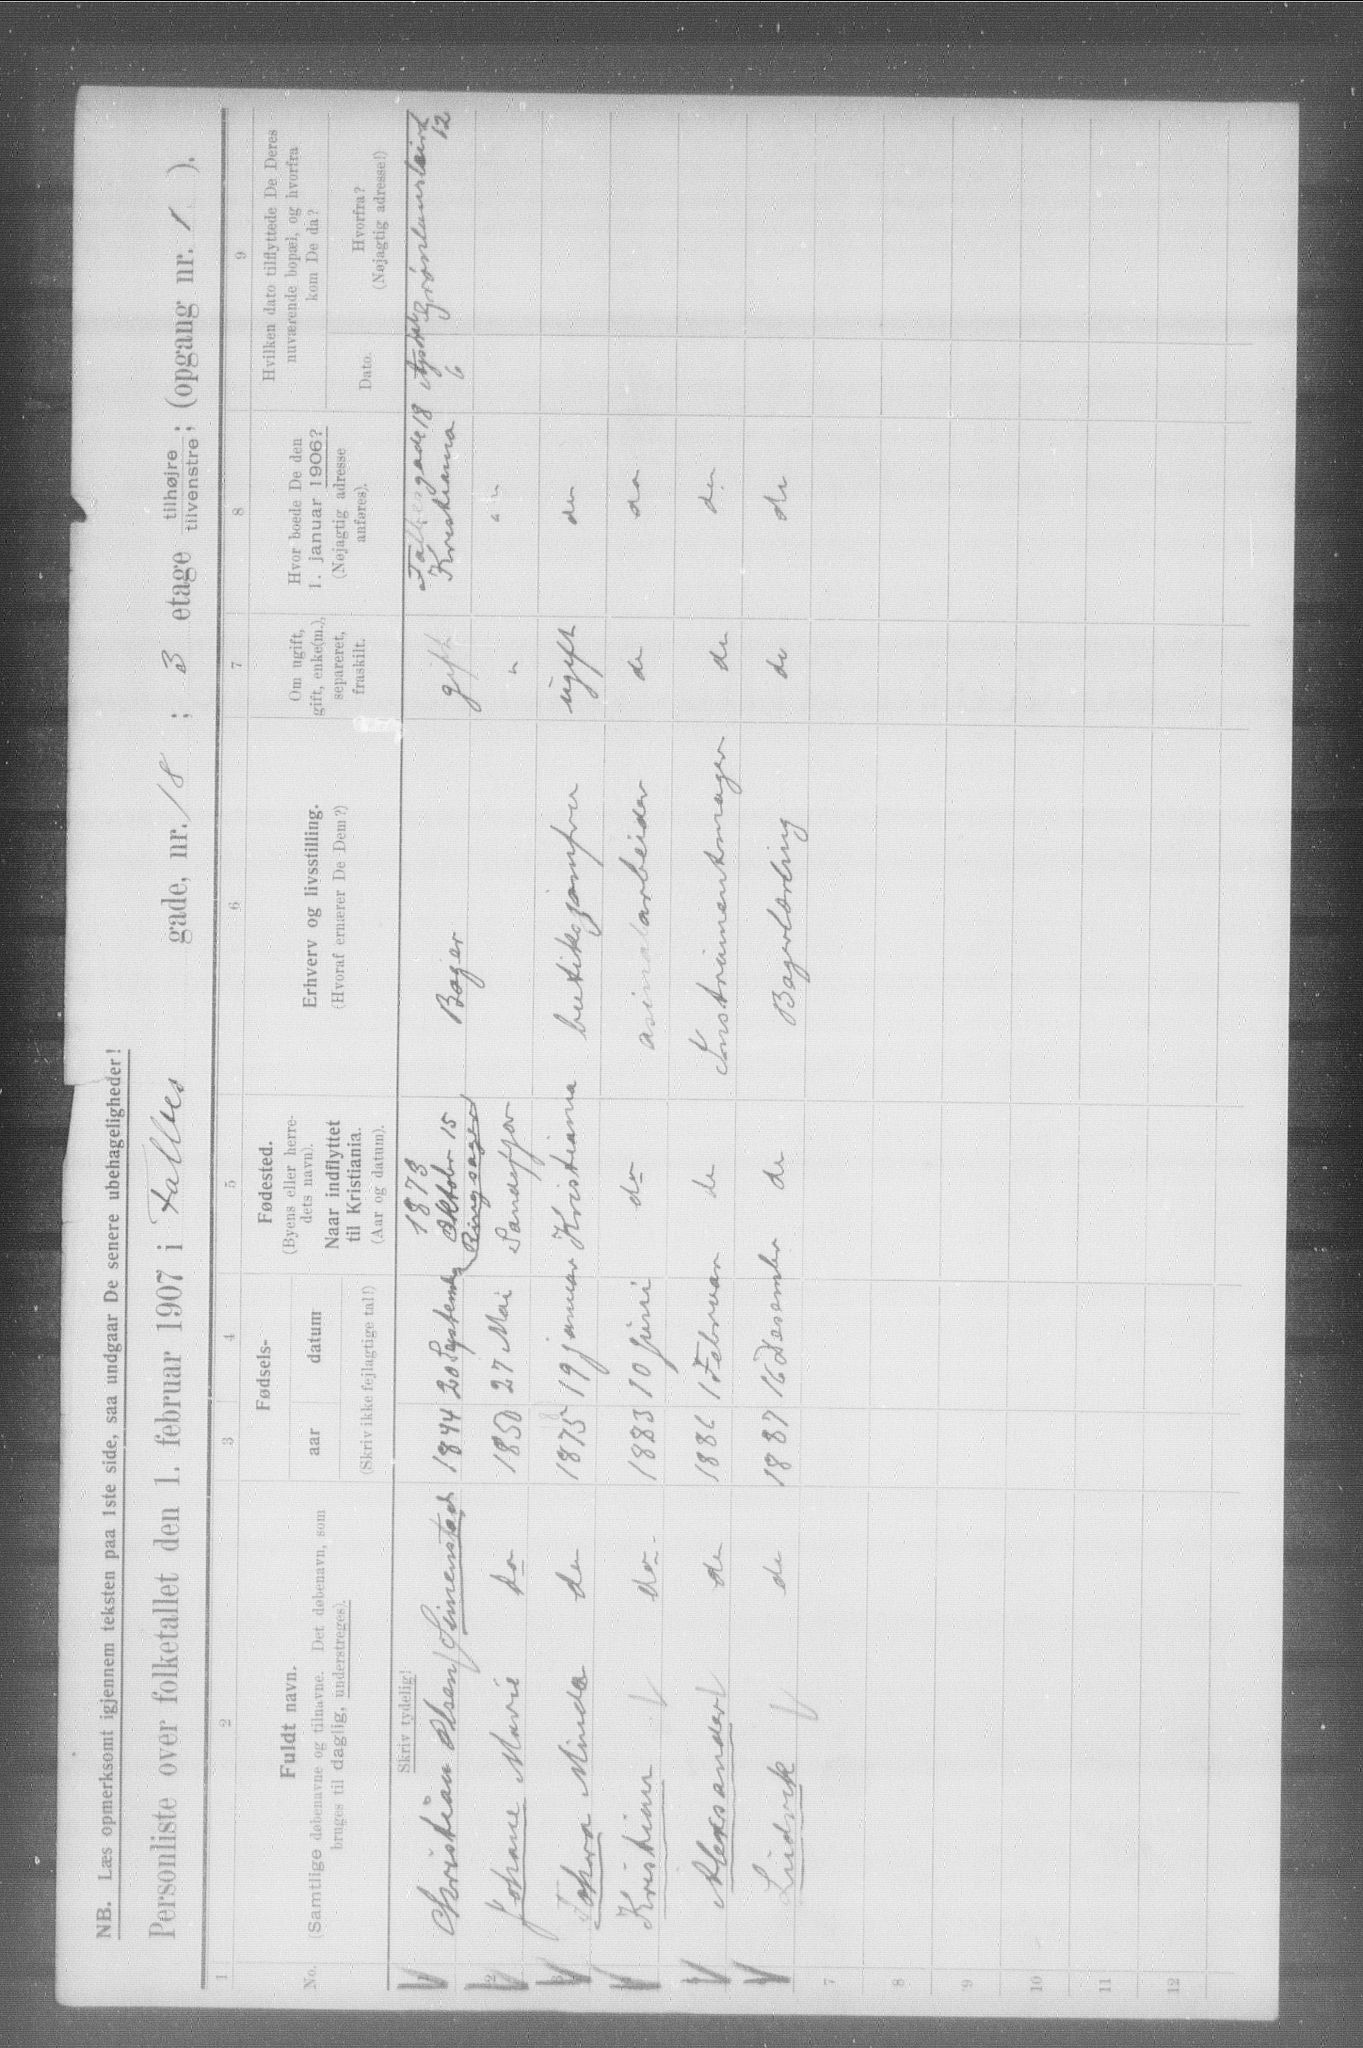 NB. Læs opmerksomt igjennem teksten paa 1ste side, saa undgaar De senere ubehageligheder!
Personliste over folketallet den 1. februar 1907 i Falbes gade, nr. 18 ; 3 etage tilhøjre / tilvenstre ; (opgang nr. 1 ).
1 2 3 4 5 6 7 8 9
No.
Fuldt navn.
(Samtlige døbenavne og tilnavne. Det døbenavn, som
bruges til daglig, understreges).
Fødsels-
aar datum
(Skriv ikke fejlagtige tal!)
Fødested.
(Byens eller herre-
dets navn).
Naar indflyttet
til Kristiania.
(Aar og datum).
Erhverv og livsstilling.
(Hvoraf ernærer De Dem?)
Om ugift,
gift, enke(m.),
separeret,
fraskilt.
Hvor boede De den
1. januar 1906?
(Nøjagtig adresse
anføres).
Hvilken dato tilflyttede De Deres
nuværende bopæl, og hvorfra
kom De da?
Dato.
Hvorfra?
(Nøjagtig adresse!)
Skriv tydelig!
1873
Oktober 15
1 Christian Olsen Simenstad 1844 20 September Ringsager Bager gift Falbesgade 18 Kristiania 6 12
2 Johane Marie do 1850 27 Mai Sandefjor " " "
3 Minda do 1875 19 januar Kristiania butiksjomfru ugift do
4 Kristian do 1883 10 Juni do do do
5 Aleksander do 1886 1 Februar do Instrumentmager do do
6 Ludvik do 1887 16 Desember do Bagerlærling do do
7
8
9
10
11
12